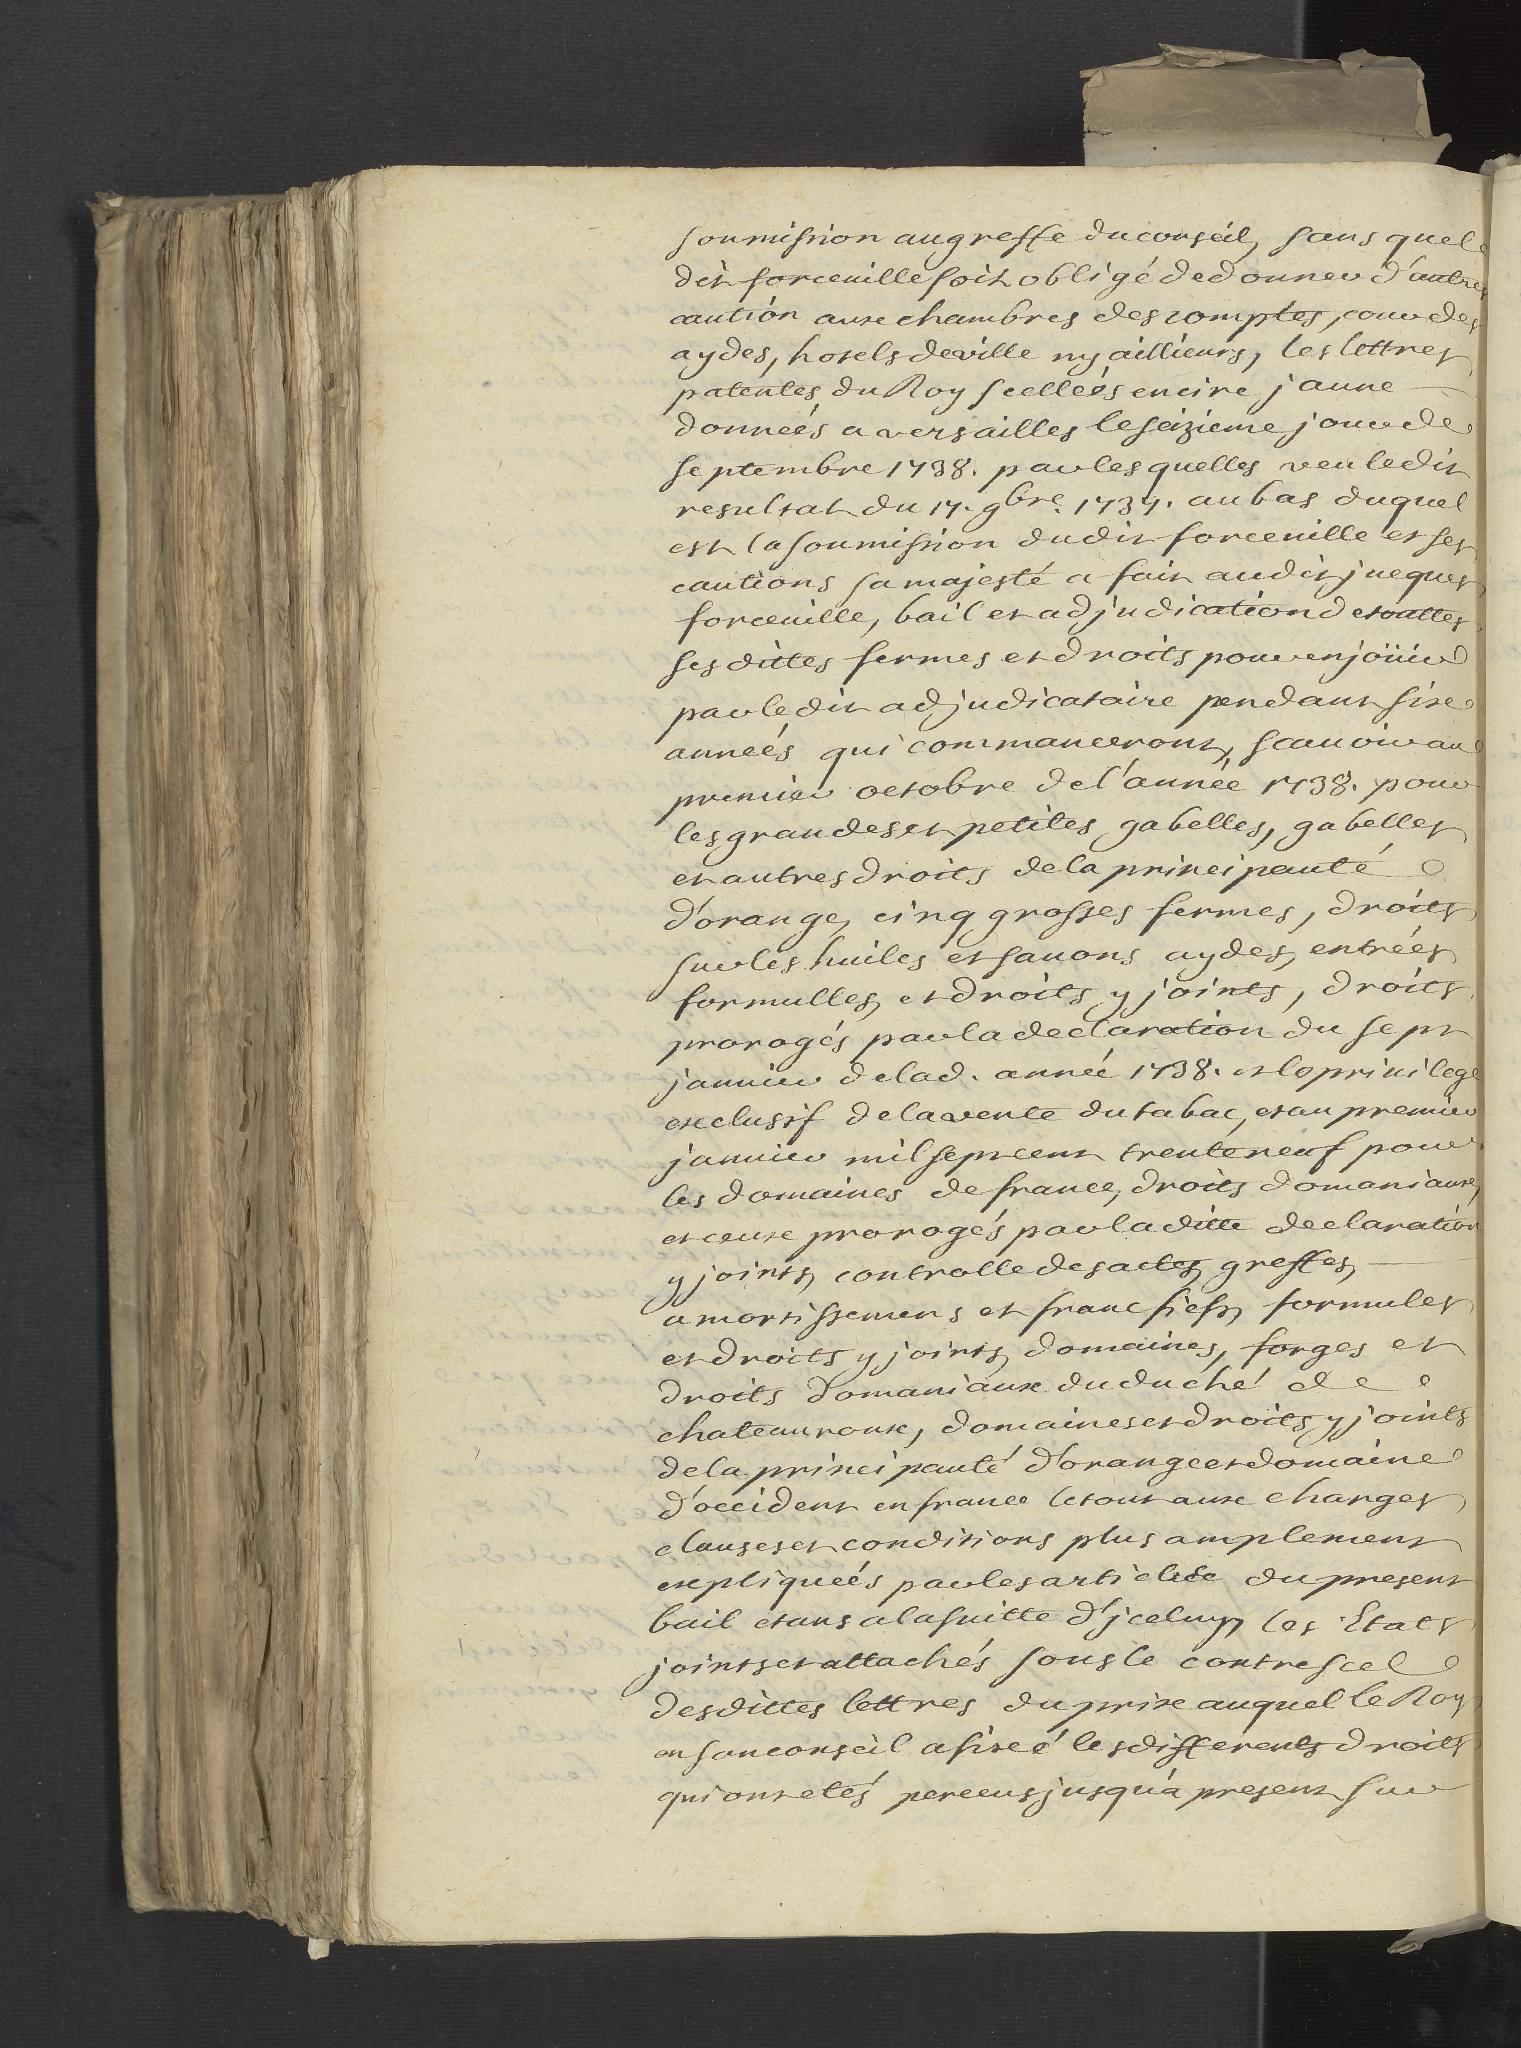 soumission au greffe du conseil, sans que le
dit forceuille soit obligé de donner d'autres
caution aux chambres des comptes, cour des
aydes, hotels de ville ny aillieurs, les lettres
patentes du Roy scelleés en cire jaune
donneés a versailles le seizieme jour de
septembre 1738. par les quelles veu ledit
resultat du 17. 9bre. 1737. au bas duquel
est la soumission dudit forceuille et ses
cautions sa majesté a fait audit jacques
forceuille, bail et adjudication de touttes
ses dittes fermes et droits pour en joüir
par ledit adjudicataire pendant six
anneés qui commanceront, scauoir au
premier octobre de l'année 1738. pour
les grandes et petites gabelles, gabelles
et autres droits de la principauté
d'orange, cinq grosses fermes, droits
sur les huiles et sauons aydes, entrées
formulles, et droits y joints, droits
prorogés par la declaration du sept
januier de lad. année 1738. et le priuilege
exclusif de la vente du tabac, et au premier
januier mil sept cent trente neuf pour
les domaines de france, droits domaniaux,
et ceux prorogés par la ditte declaration
y joints, controlle des actes, greffes,
amortissemens et franc fiefs, formules
et droits y joints, domaines, forges et
droits domaniaux du duché de
chateauroux, domaines et droits y joints
de la principauté d'orange et domaine
d'occident en france le tout aux charges
clauses et conditions plus amplement
expliqueés par les articles du present
bail et aus a la suitte d'jceluy, les Etats
joints et attachés sous le contrescel
des dittes lettres du prix auquel le Roy
en son conseil a fixeé les differents droits
qui ont etés perceus jusqu'a present sur